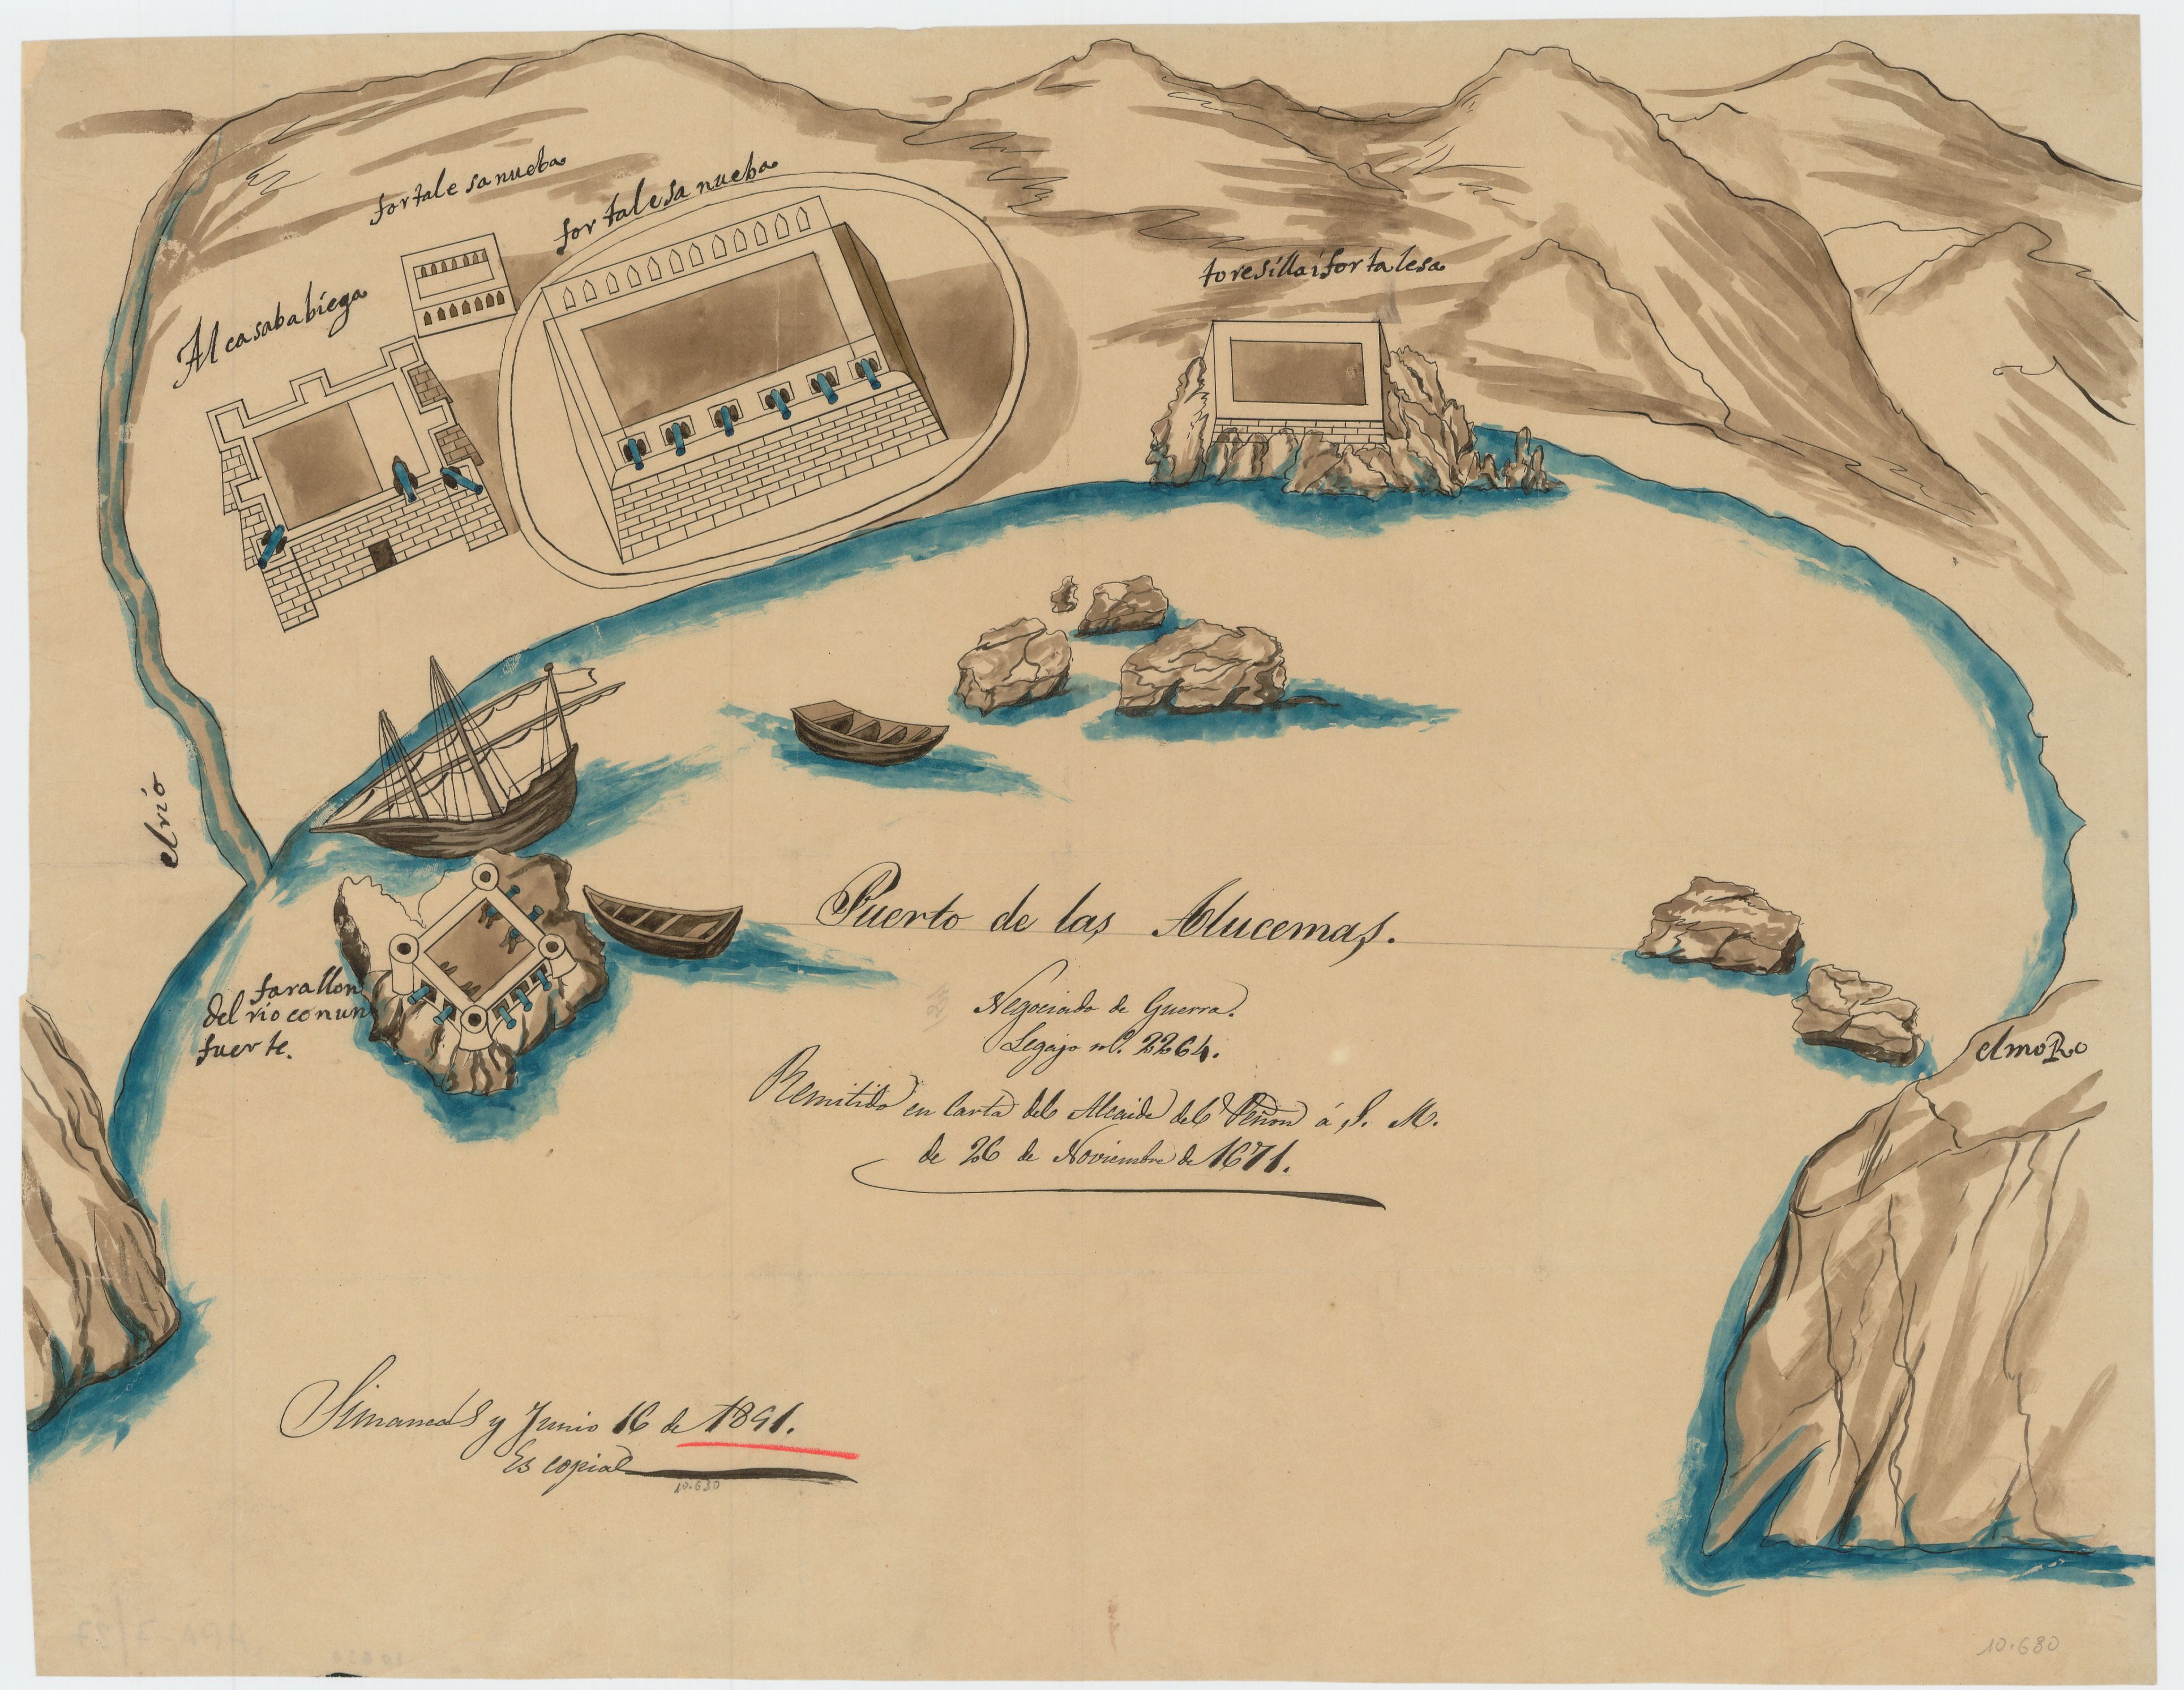 fortalesanueba
fortalesa nueba
Alcasababiega
toresillaifortalesa
el rio
Puerto de las Alucemas.
Negociado de Guerra.
Legajo nº. 2264.
Remitido en carta del Alcaide del Peñon á S. M.
de 26 de Noviembre de 1671.
farallon
del rio conun
fuerte.
elmoRo
Simancas y Junio 16 de 1891.
Es copia
10.680
10.680